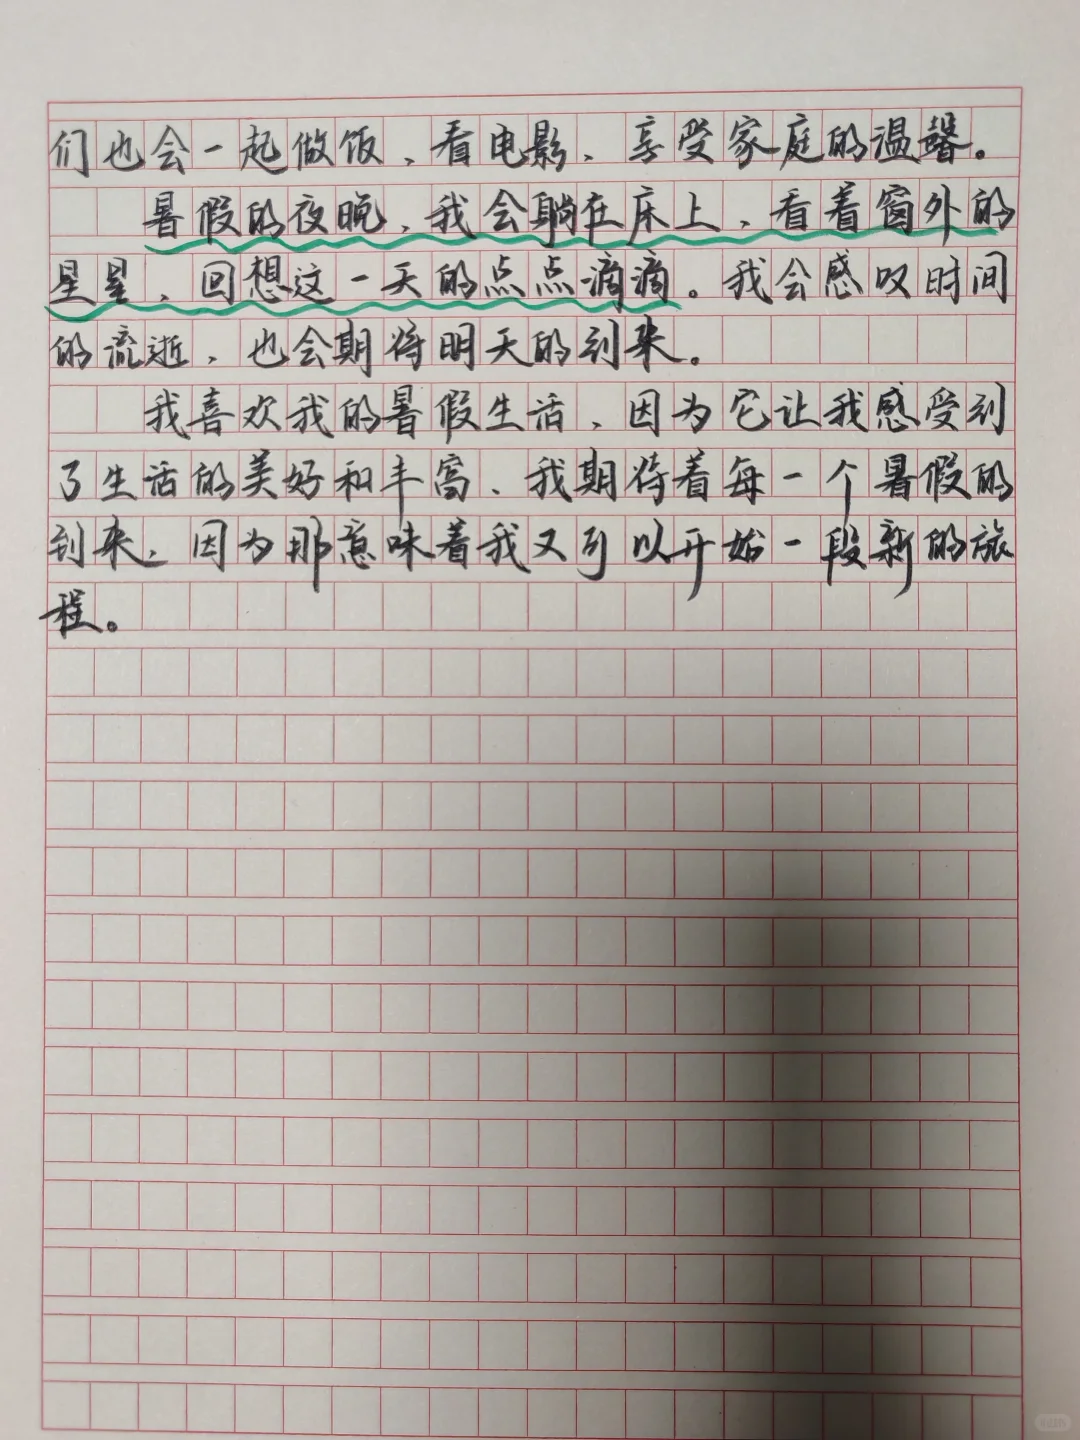 们也会一起做饭、看电影、享受家庭的温馨。
暑假的夜晚,我会躺在床上,看着窗外的
星星,回想这一天的点点滴滴。我会感叹时间
的流逝,也会期待明天的到来。
我喜欢我的暑假生活,因为它让我感受到
了生活的美好和丰富、我期待着每一个暑假的
到来,因为那意味着我又可以开始一段新的旅
程。